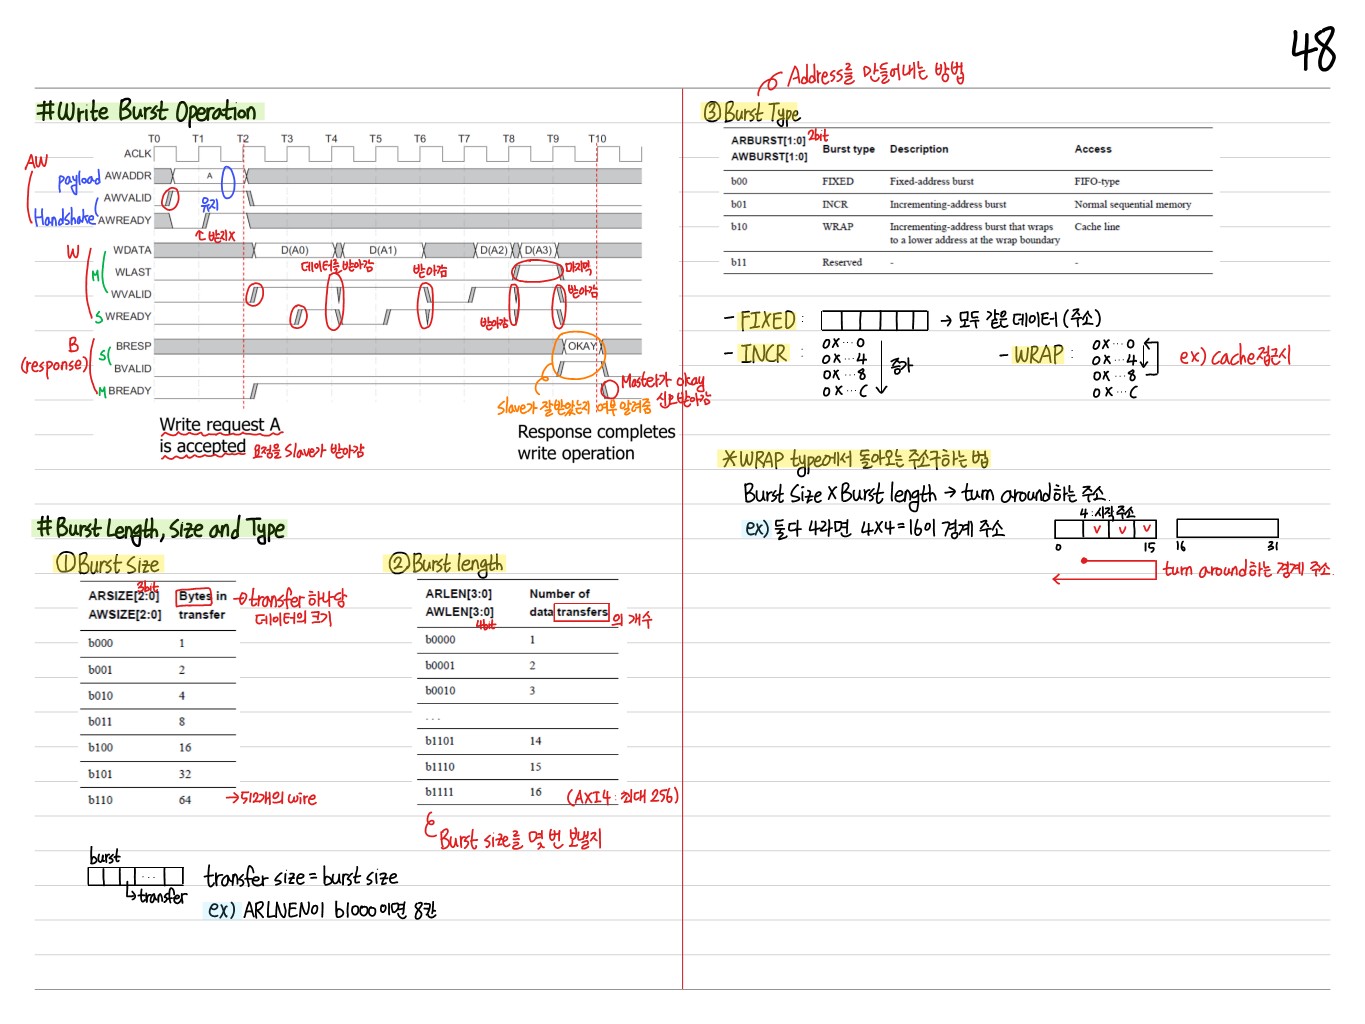 48
#Write Burst Operation
T0 T1 T2 T3 T4 T5 T6 T7 T8 T9 T10
ACLK
AW
payload AWADDR A
AWVALID 유지
Handshake AWREADY
받지X
W
WDATA D(A0) D(A1) D(A2) D(A3)
데이터를 받아감 받아감 마지막
M WLAST
WVALID 받아감
S WREADY 받아감
B
(response)
S BRESP OKAY
BVALID
M BREADY
Master가 okay
신호 받아감
Slave가 잘받았는지 여부 알려줌
Write request A
is accepted 요청을 Slave가 받아감
Response completes
write operation
#Burst Length, Size and Type
①Burst Size
3bit
ARSIZE[2:0] Bytes in
AWSIZE[2:0] transfer
→transfer 하나당
데이터의 크기
b000 1
b001 2
b010 4
b011 8
b100 16
b101 32
b110 64 →512개의 wire
②Burst length
ARLEN[3:0] Number of
AWLEN[3:0] data transfers 의 개수
4bit
b0000 1
b0001 2
b0010 3
. . .
b1101 14
b1110 15
b1111 16 (AXI4 : 최대 256)
Burst size를 몇 번 보낼지
burst
...
transfer
transfer size = burst size
ex) ARLNEN이 b1000이면 8칸
Address를 만들어내는 방법
③Burst Type
2bit
ARBURST[1:0]
AWBURST[1:0] Burst type Description Access
b00 FIXED Fixed-address burst FIFO-type
b01 INCR Incrementing-address burst Normal sequential memory
b10 WRAP Incrementing-address burst that wraps Cache line
to a lower address at the wrap boundary
b11 Reserved - -
- FIXED : → 모두 같은 데이터 (주소)
- INCR : 0x...0
0x...4
0x...8
0x...C
증가
- WRAP : 0x...0
0x...4
0x...8
0x...C
ex) cache접근시
*WRAP type에서 돌아오는 주소구하는 법
Burst Size X Burst length → turn around하는 주소.
ex) 둘다 4라면 4X4=16이 경계 주소
4:시작주소
v v v
0 15 16 31
turn around하는 경계 주소.